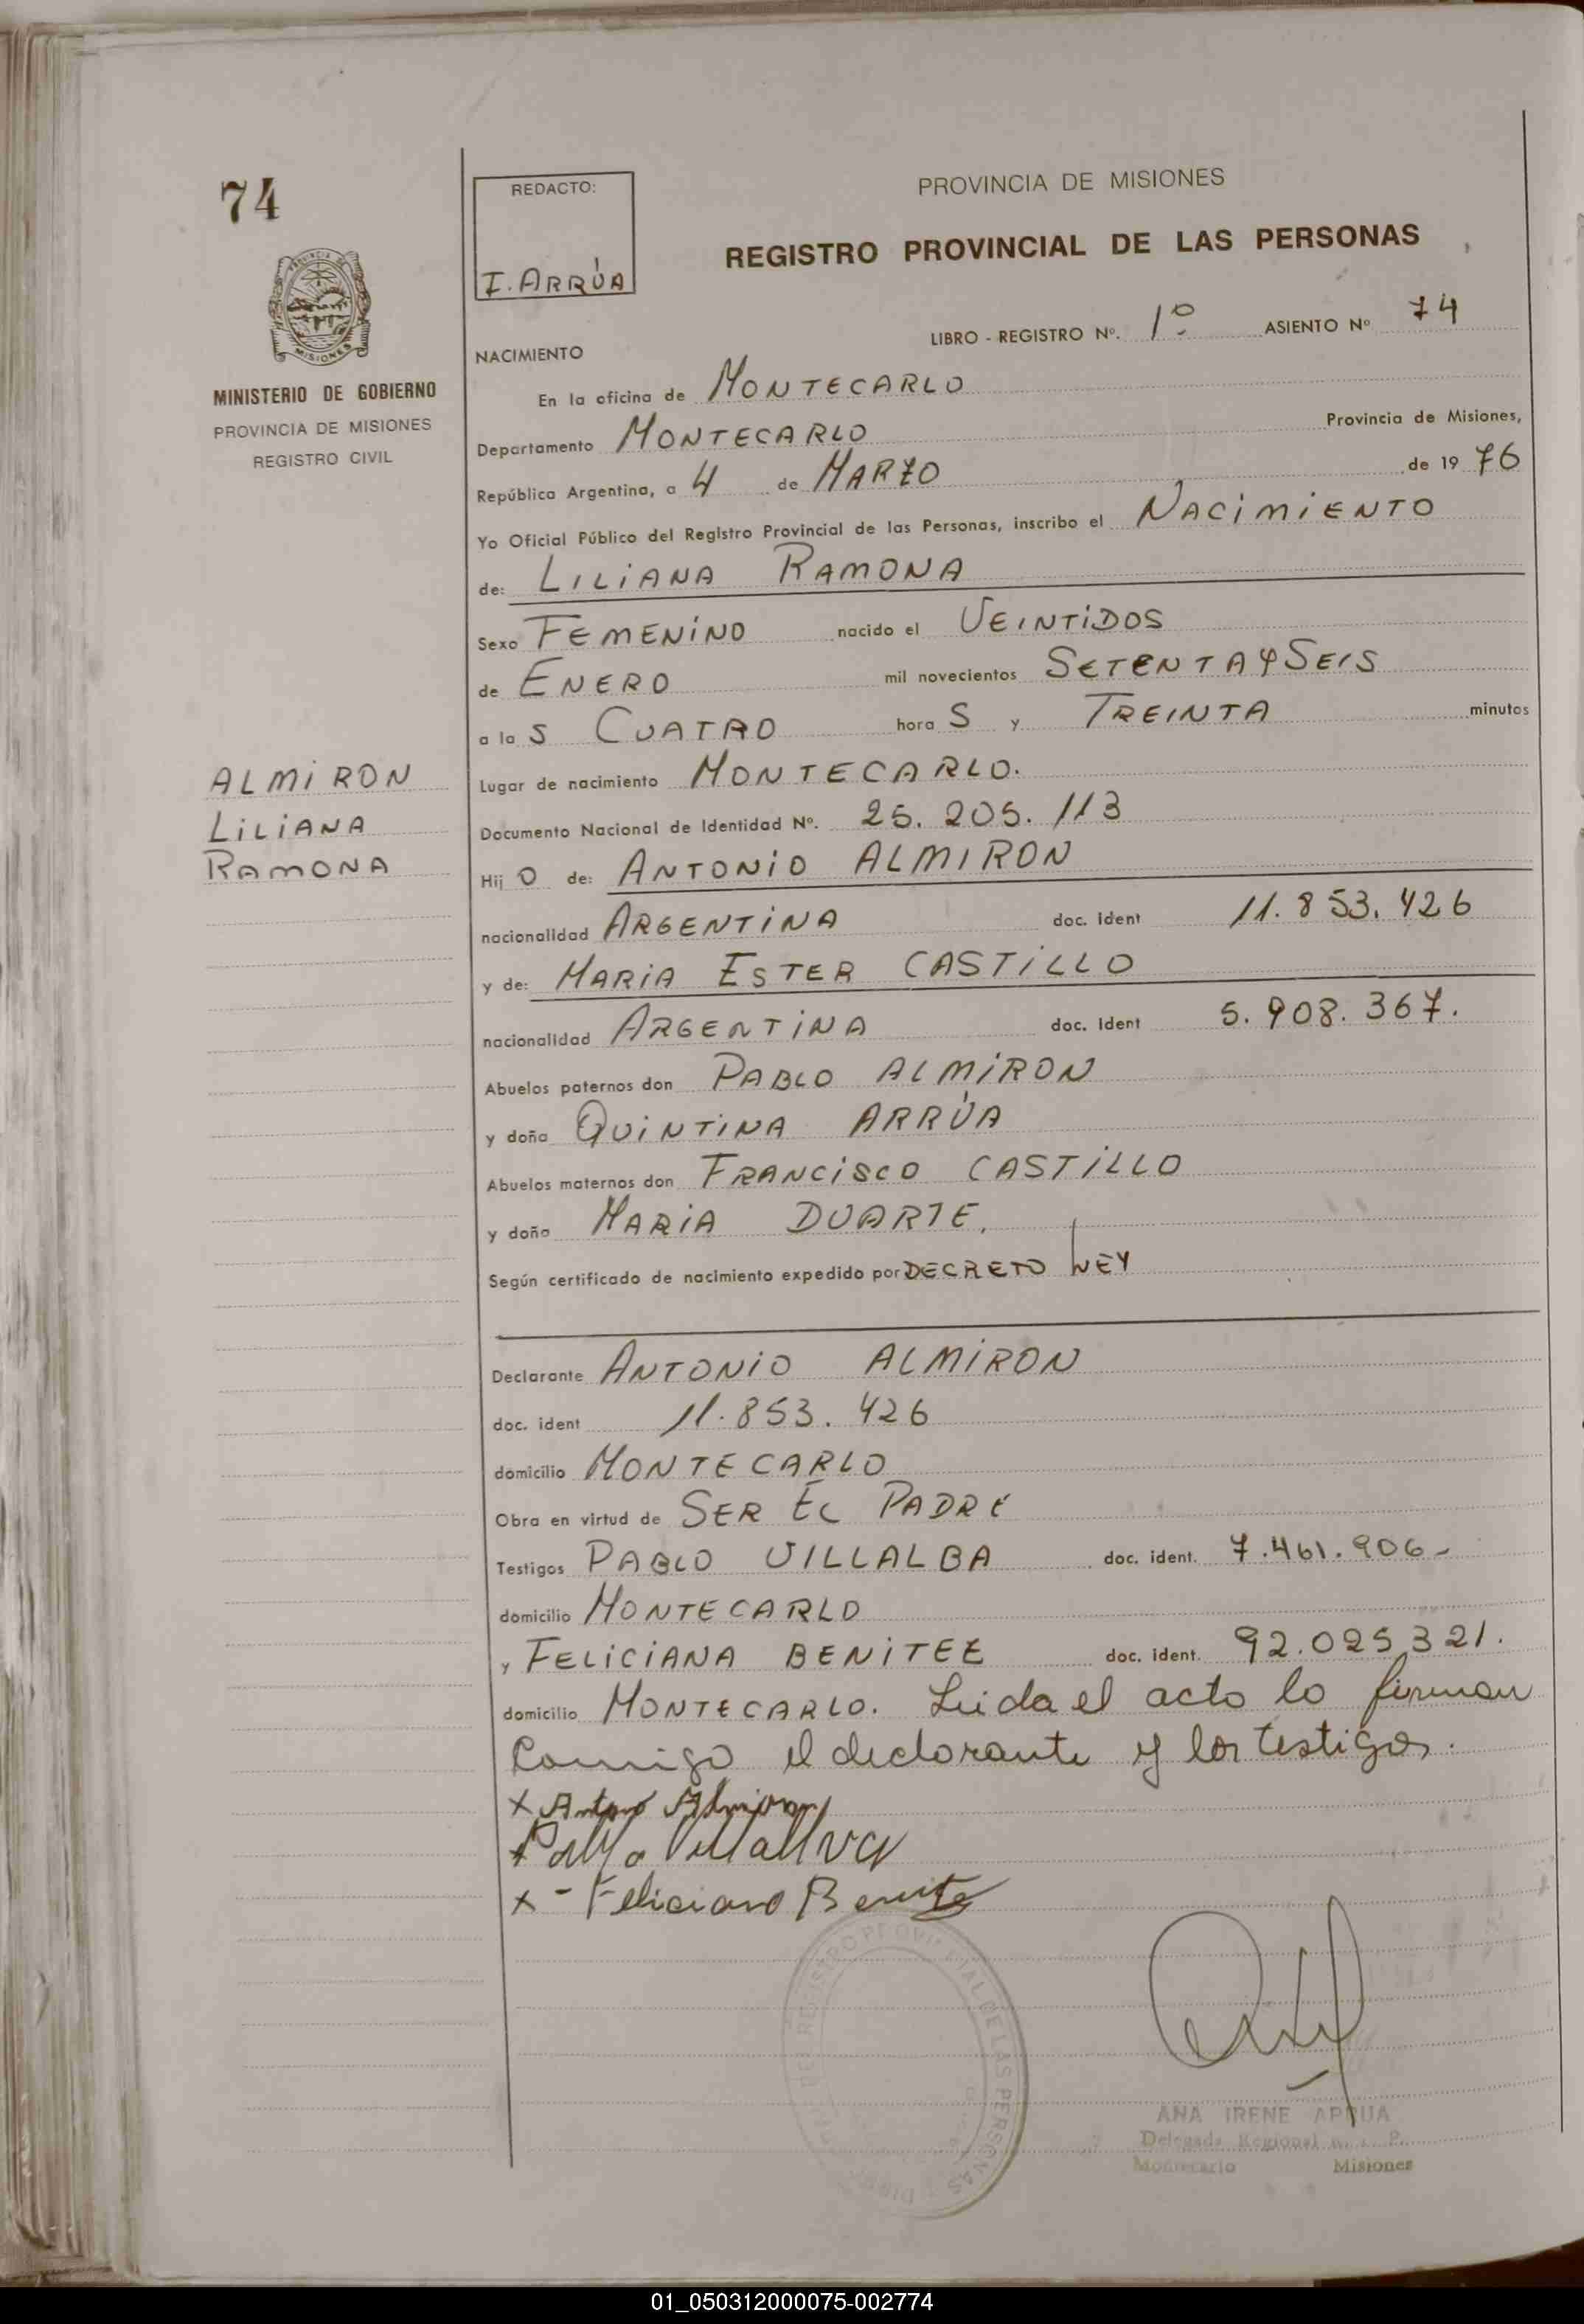 74
MINISTERIO DE GOBIERNO
PROVINCIA DE MISIONES
REGISTRO CIVIL
ALMIRON
LILIANA
RAMONA
REDACTO:
I. ARRÚA
PROVINCIA DE MISIONES
REGISTRO PROVINCIAL DE LAS PERSONAS
LIBRO - REGISTRO Nº. 1º ASIENTO Nº 74
NACIMIENTO
En la oficina de MONTECARLO
Departamento MONTECARLO Provincia de Misiones,
República Argentina, a 4 de MARZO de 19 76
Yo Oficial Público del Registro Provincial de las Personas, inscribo el NACIMIENTO
de: LILIANA RAMONA
Sexo FEMENINO nacido el VEINTIDOS
de ENERO mil novecientos SETENTA Y SEIS
a la S CUATRO hora S y TREINTA minutos
Lugar de nacimiento MONTECARLO.
Documento Nacional de Identidad Nº. 25.205.113
Hij O de: ANTONIO ALMIRON
nacionalidad ARGENTINA doc. ident 11.853.426
y de: MARIA ESTER CASTILLO
nacionalidad ARGENTINA doc. ident 5.908.367.
Abuelos paternos don PABLO ALMIRON
y doña QUINTINA ARRÚA
Abuelos maternos don FRANCISCO CASTILLO
y doña MARIA DUARTE.
Según certificado de nacimiento expedido por DECRETO LEY
Declarante ANTONIO ALMIRON
doc. ident 11.853.426
domicilio MONTECARLO
Obra en virtud de SER EL PADRE
Testigos PABLO VILLALBA doc. ident. 7.461.906-
domicilio MONTECARLO
y FELICIANA BENITEZ doc. ident. 92.025321.
domicilio MONTECARLO. Leida el acta lo firman
Comigo el declarante y los testigos.
x Antonio Almiron
x Pablo Villallva
x - Feliciano Benite
REGISTRO PROVINCIAL DE LAS PERSONAS
ANA IRENE ARRUA
Delegada Regional
Montecarlo Misiones
01_050312000075-002774